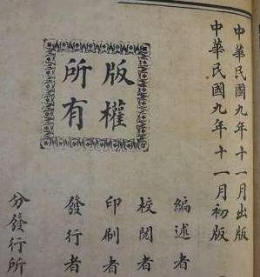 中華民國九年十一月出版
中華民國九年十一月初版
版權
所有
編述者
校閱者
印刷者
發行者
分發行所